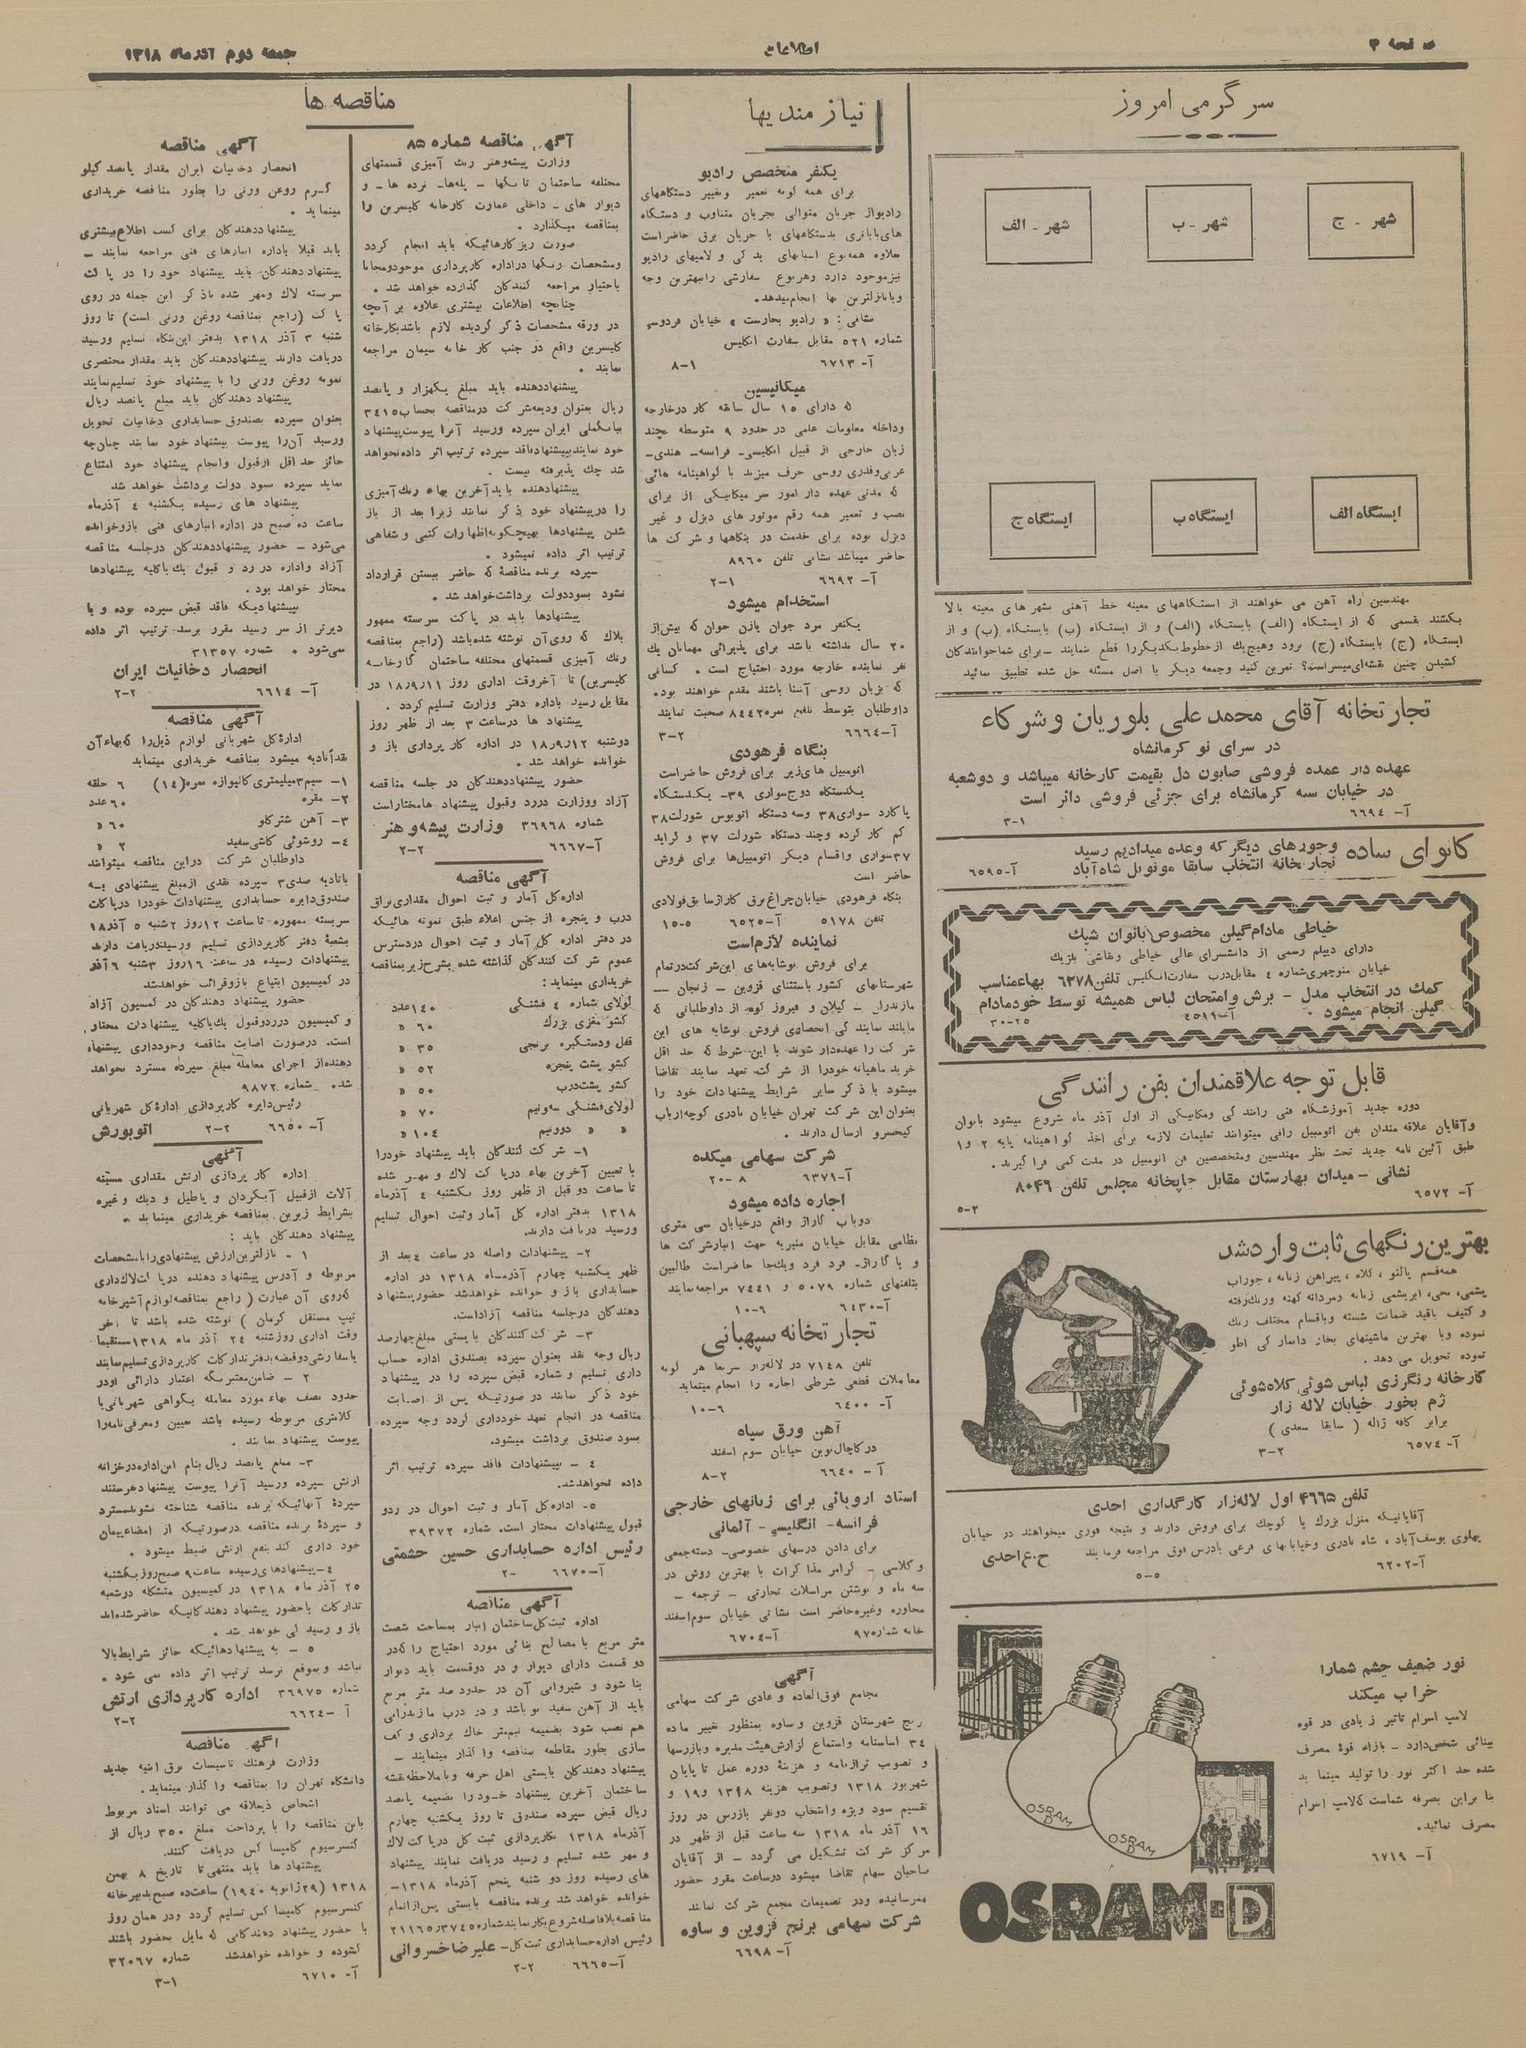 صفحه ۴
اطلاعات
جمعه دوم آذرماه ۱۳۱۸
سرگرمی امروز
شهر - ج
شهر - ب
شهر - الف
ایستگاه الف
ایستگاه ب
ایستگاه ج
مهندسین راه آهن می خواهند از ایستگاههای معینه خط آهنی بشهرهای معینه بالا
بکشند بقسمی که از ایستگاه (الف) بایستگاه (الف) و از ایستگاه (ب) بایستگاه (ب) و از
ایستگاه (ج) بایستگاه (ج) برود وهیچ‌یك ازخطوط یکدیگررا قطع ننمایند - برای شماخوانندگان
کشیدن چنین نقشه‌ای میسراست؟ تمرین کنید وجمعه دیگر با اصل مسئله حل شده تطبیق نمائید
تجارتخانه آقای محمدعلی بلوریان وشرکاء
در سرای نو کرمانشاه
عهده دار عمده فروشی صابون دل بقیمت کارخانه میباشد و دوشعبه
در خیابان سپه کرمانشاه برای جزئی فروشی دائر است
آ- ۶۶۹۴ ۳-۱
کانوای ساده
وجورهای دیگرکه وعده میدادیم رسید
تجارتخانه انتخاب سابقا مونوبل شاه‌آباد آ-۶۵۹۵
خیاطی مادام‌گیلن مخصوص بانوان شیك
دارای دیپلم رسمی از دانشسرای عالی خیاطی و نقاشی بلژیك
خیابان منوچهری شماره ٤ مقابل درب سفارت انگلیس تلفن ۶۳۷۸ بهاء مناسب
کمك در انتخاب مدل - برش وامتحان لباس همیشه توسط خودمادام
گیلن انجام میشود . آ-۴۵۱۹ ۳۰-۲۵
قابل توجه علاقمندان بفن رانندگی
دوره جدید آموزشگاه فنی رانندگی ومکانیکی از اول آذر ماه شروع میشود بانوان
وآقایان علاقه‌مندان بفن اتومبیل رانی میتوانند تعلیمات لازمه برای اخذ گواهینامه پایه ۲ و۱
طبق آئین نامه جدید تحت نظر مهندسین ومتخصصین فن اتومبیل در مدت کمی فرا گیرند .
نشانی - میدان بهارستان مقابل چاپخانه مجلس تلفن ۸۰۴۶
آ- ۶۵۷۲ ۵-۲
بهترین رنگهای ثابت وارد شد
همه‌قسم پالتو ، کلاه ، پیراهن زنانه ، جوراب
پشمی، نخی، ابریشمی زنانه ومردانه کهنه ورنگ‌رفته
و کثیف باقید ضمانت شسته وباقسام مختلف رنك
نموده وبا بهترین ماشینهای بخار آلمان کی اطو
نموده تحویل می دهد .
کارخانه رنگرزی لباس شوئی کلاه‌شوئی
ژم بخور خیابان لاله زار
برابر کافه ژاله ( سابقا سعدی )
آ- ۶۵۷۴ ۳-۲
تلفن ۴۶۶۵ اول لاله‌زار کارگذاری احدی
آقایانیکه منزل بزرك یا کوچك برای فروش دارند و نتیجه فوری میخواهند در خیابان
پهلوی یوسف‌آباد ، شاه نادری وخیابانهای فرعی بادرس فوق مراجعه فرمایند ح.ع احدی
آ-۶۲۰۲ ۵-۵
نور ضعیف چشم شمارا
خراب میکند
لامپ اسرام تاثیر زیادی در قوه
بینائی شخص‌دارد - بازاء قوهٔ مصرف
شده حد اکثر نور را تولید مینماید
بنا براین بصرفه شماست‌که‌لامپ اسرام
مصرف نمائید.
آ- ۶۷۱۹
OSRAM D
OSRAM D
OSRAM-D
نیازمندیها
یکنفر متخصص رادیو
برای همه گونه تعمیر وتغییر دستگاههای
رادیواز جریان متوالی بجریان متناوب و دستگاه
های‌باباتری بدستگاههای با جریان برق حاضراست
بعلاوه همه‌نوع اسبابهای یدکی و لامپهای رادیو
نیزموجود دارد وهرنوع سفارشی رابهترین وجه
وبانازلترین بها انجام‌میدهد.
نشانی: « رادیو بخارست » خیابان فردوسی
شماره ۵۲۱ مقابل سفارت انگلیس
آ- ۶۷۱۳ ۸-۱
میکانیسین
که دارای ۱۵ سال سابقه کار درخارجه
وداخله معلومات علمی در حدود ۹ متوسطه بچند
زبان خارجی از قبیل انگلیسی- فرانسه- هندی-
عربی‌وقدری روسی حرف میزند با گواهینامه هائی
که مدتی عهده دار امور سر میکانیکی از برای
نصب و تعمیر همه رقم موتور های دیزل و غیر
دیزل بوده برای خدمت در بنگاهها و شرکت ها
حاضر میباشد نشانی تلفن ۸۹۶۰
آ- ۶۶۹۲ ۲-۱
استخدام میشود
یکنفر مرد جوان یازن جوان که بیش‌از
۲۰ سال نداشته باشد برای پذیرائی مهمانان یك
نفر نماینده خارجه مورد احتیاج است . کسانی
که بزبان روسی آشنا باشند مقدم خواهند بود.
داوطلبان بتوسط تلفن نمره ۸۴۴۲ صحبت نمایند
آ-۶۶۶۴ ۳-۲
بنگاه فرهودی
اتومبیل های‌زیر برای فروش حاضراست
یکدستگاه دوج‌سواری ۳۹- یکدستگاه
پاکارد سواری۳۸ وسه دستگاه اتوبوس شورلت۳۸
کم کار کرده وچند دستگاه شورلت ۳۷ و گراید
۳۷سواری واقسام دیگر اتومبیل‌ها برای فروش
حاضر است
بنگاه فرهودی خیابان‌چراغ‌برق گاراژسابق‌فولادی
تلفن ۵۱۷۸ آ-۶۵۲۵ ۱۵-۵
نماینده لازم‌است
برای فروش نوشابه‌های این‌شرکت‌درتمام
شهرستانهای کشور باستثنای قزوین - زنجان -
مازندران - گیلان و فیروز کوه از داوطلبانی که
مایلند نمایندگی انحصاری فروش نوشابه های این
شرکت را عهده‌دار شوند با این شرط که حد اقل
خرید ماهیانه خودرا از شرکت تعهد نمایند تقاضا
میشود با ذکر سایر شرایط پیشنهادات خود را
بعنوان‌این شرکت تهران خیابان نادری کوچه‌ارباب
کیخسرو ارسال دارند .
شرکت سهامی میکده
آ-۶۳۷۱ ۲۰-۸
اجاره داده میشود
دوباب گاراژ واقع درخیابان سی متری
نظامی مقابل خیابان منیریه جهت انبارشرکت ها
و یا گاراژ- فرد فرد ویك‌جا حاضراست طالبین
بتلفنهای شماره ۵۰۷۹ و ۷۴۴۱ مراجعه‌نمایند
آ-۶۴۳۰ ۱۰-۶
تجارتخانه سپهبانی
تلفن ۷۱۴۸ در لاله‌زار سرجا هر گونه
معاملات قطعی شرطی اجاره را انجام مینماید
آ- ۶۴۰۰ ۱۰-۶
آهن ورق سیاه
درکانچال‌نوین خیابان سوم اسفند
آ- ۶۶۴۰ ۸-۲
استاد اروپائی برای زبانهای خارجی
فرانسه- انگلیسی- آلمانی
برای دادن درسهای خصوصی- دسته‌جمعی
و کلاسی - گرامر مذاکرات با بهترین روش در
سه ماه و نوشتن مراسلات تجارتی - ترجمه -
محاوره وغیره‌حاضر است نشانی خیابان سوم‌اسفند
خانه شماره ۹۷ آ-۶۷۰۴
آگهی
مجامع فوق‌العاده و عادی شرکت سهامی
برنج شهرستان قزوین و ساوه بمنظور تغییر ماده
۳۴ اساسنامه واستماع گزارش‌هیئت مدیره وبازرسها
و تصویب ترازنامه و هزینهٔ دوره عمل تاپایان
شهریور ۱۳۱۸ وتصویب هزینه ۱۳۱۸ و۱۹ و
تقسیم سود ویژه وانتخاب دونفر بازرس در روز
۱۶ آذر ماه ۱۳۱۸ سه ساعت قبل از ظهر در
مرکز شرکت تشکیل می گردد - از آقایان
صاحبان سهام تقاضا میشود درساعت مقرر حضور
بهمرسانیده ودر تصمیمات مجمع شرکت نمایند
شرکت سهامی برنج قزوین و ساوه
آ- ۶۶۹۸
مناقصه ها
آگهی مناقصه شماره ۸۵
وزارت پیشه‌وهنر رنك آمیزی قسمتهای
مختلفه ساختمان تانکها - پله‌ها- نرده ها- و
دیوار های- داخلی عمارت کارخانه گلیسرین را
بمناقصه میگذارد .
صورت ریز کارهائیکه باید انجام گردد
ومشخصات رنگها دراداره کارپردازی موجودومجانا
باختیار مراجعه کنندگان گذارده خواهد شد .
چنانچه اطلاعات بیشتری علاوه بر آنچه
در ورقه مشخصات ذکر گردیده لازم باشدبکارخانه
گلیسرین واقع در جنب کارخانه سیمان مراجعه
نمایند .
پیشنهاددهنده باید مبلغ یکهزار و پانصد
ریال بعنوان ودیعه‌شرکت درمناقصه بحساب ۳۴۱۵
ببانك‌ملی ایران سپرده ورسید آنرا پیوست‌پیشنهاد
خود نمایندبپیشنهادفاقد سپرده ترتیب اثر داده‌نخواهد
شد چك پذیرفته نیست .
پیشنهاددهنده باید آخرین بهاء رنك‌آمیزی
را درپیشنهاد خود ذکر نمانند زیرا بعد از باز
شدن پیشنهادها بهیچگونه‌اظهارات کتبی و شفاهی
ترتیب اثر داده نمیشود .
سپرده برنده مناقصهٔ که حاضر ببستن قرارداد
نشود بسوددولت برداشت‌خواهد شد .
پیشنهادها باید در پاکت سربسته ممهور
بلاك که روی‌آن نوشته شده‌باشد (راجع بمناقصه
رنك آمیزی قسمتهای مختلفه ساختمان کارخانه
گلیسرین) تا آخروقت اداری روز ۱۸٫۹٫۱۱ در
مقابل رسید باداره دفتر وزارت تسلیم گردد .
پیشنهاد ها درساعت ۳ بعد از ظهر روز
دوشنبه ۱۸٫۹٫۱۲ در اداره کارپردازی باز و
خوانده خواهد شد .
حضور پیشنهاددهندگان در جلسه مناقصه
آزاد ووزارت دررد وقبول پیشنهاد هامختاراست
شماره ۳۶۹۶۸ وزارت پیشه‌وهنر
آ-۶۶۶۷ ۲-۲
آگهی مناقصه
اداره‌کل آمار و ثبت احوال مقداری‌یراق
درب و پنجره از جنس اعلاء طبق نمونه هائیکه
در دفتر اداره کل آمار و ثبت احوال دردسترس
عموم شرکت کنندگان گذاشته شده بشرح‌زیربمناقصه
خریداری مینماید:
لولای شماره ٤ فشنگی ۱۴۰عدد
کشو مغزی بزرك ۶۰ «
قفل ودستگیره برنجی ۳۵ «
کشو پشت پنجره ۵۲ «
کشو پشت‌درب ۵۰ «
لولای‌فشنگی سه‌ونیم ۷۰ «
« « دونیم ۱۰۴ «
۱- شرکت کنندگان باید پیشنهاد خودرا
با تعیین آخرین بهاء درپاکت لاك و مهر شده
تا ساعت دو قبل از ظهر روز یکشنبه ٤ آذرماه
۱۳۱۸ بدفتر اداره کل آمار وثبت احوال تسلیم
ورسید دریافت دارند.
۲- پیشنهادات واصله در ساعت ٤ بعد از
ظهر یکشنبه چهارم آذرماه ۱۳۱۸ در اداره
حسابداری باز و خوانده خواهدشد حضورپیشنهاد
دهندگان درجلسه مناقصه آزاداست.
۳- شرکت‌کنندگان بایستی مبلغ‌چهارصد
ریال وجه نقد بعنوان سپرده بصندوق اداره حساب
داری تسلیم و شماره قبض سپرده را در پیشنهاد
خود ذکر نمایند در صورتیکه پس از اصابت
مناقصه در انجام تعهد خودداری گردد وجه سپرده
بسود صندوق برداشت میشود.
٤ - بپیشنهادات فاقد سپرده ترتیب اثر
داده نخواهدشد.
۵- اداره‌کل آمار و ثبت احوال در ردو
قبول پیشنهادات مختار است. شماره ۳۹۳۷۲
رئیس اداره حسابداری حسین حشمتی
آ-۶۶۷۰ ۲-
آگهی مناقصه
اداره ثبت‌کل‌ساختمان انبار بمساحت شصت
متر مربع با مصالح بنائی مورد احتیاج راکه‌در
دو قسمت دارای دیوار و در دوقسمت باید دیوار
بنا شود و شیروانی آن در حدود صد متر مربع
باید از آهن سفید نو باشد و در درب مازندرانی
هم نصب شود بضمیمه نیم‌متر خاك برداری و کف
سازی بطور مقاطعه مناقصه واگذار مینمایند -
پیشنهاد دهندگان بایستی اهل حرفه وباملاحظه‌نقشه
ساختمان آخرین پیشنهاد خود را بضمیمه پانصد
ریال قبض سپرده صندوق تا روز یکشنبه چهارم
آذرماه ۱۳۱۸ بکارپردازی ثبت کل درپاکت لاك
و مهر شده تسلیم و رسید دریافت نمایند پیشنهاد
های رسیده روز دو شنبه پنجم آذرماه ۱۳۱۸-
خوانده خواهد شد برنده مناقصه بایستی پس‌ازاتمام
مناقصه بلافاصله شروع بکارنمایندشماره ۲۱۱۶۵/۳۷۴۵
رئیس اداره‌حسابداری ثبت‌کل- علیرضاخسروانی
آ-۶۶۶۵ ۲-۲
آگهی مناقصه
انحصار دخانیات ایران مقدار پانصد کیلو
گرم روغن ورنی را بطور مناقصه خریداری
مینماید .
پیشنهاددهندگان برای کسب اطلاع‌بیشتری
باید قبلا باداره انبارهای فنی مراجعه نمایند -
پیشنهاد دهندگان باید پیشنهاد خود را در پاکت
سربسته لاك ومهر شده باذکر این جمله در روی
پاکت (راجع بمناقصه روغن ورنی است) تا روز
شنبه ۳ آذر ۱۳۱۸ بدفتر این‌بنگاه تسلیم ورسید
دریافت دارند پیشنهاددهندگان باید مقدار مختصری
نمونه روغن ورنی را با پیشنهاد خود تسلیم‌نمایند
پیشنهاد دهندگان باید مبلغ پانصد ریال
بعنوان سپرده بصندوق حسابداری دخانیات تحویل
ورسید آن‌را پیوست پیشنهاد خود نمایند چنان‌چه
حائز حد اقل ازقبول وانجام پیشنهاد خود امتناع
نماید سپرده بسود دولت برداشت خواهد شد
پیشنهاد های رسیده یکشنبه ٤ آذرماه
ساعت ده صبح در اداره انبارهای فنی بازوخوانده
می‌شود - حضور پیشنهاددهندگان درجلسه مناقصه
آزاد واداره در رد و قبول یك‌یاکلیه پیشنهادها
مختار خواهد بود .
بپیشنهادیکه فاقد قبض سپرده بوده و یا
دیرتر از سر رسید مقرر برسد ترتیب اثر داده
نمی‌شود . شماره ۳۱۳۵۷
انحصار دخانیات ایران
آ- ۶۶۱۴ ۲-۲
آگهی مناقصه
ادارهٔ‌کل شهربانی لوازم ذیل‌را که‌بهاءآن
نقدآتادیه میشود بمناقصه خریداری مینماید
۱- سیم ۳میلیمتری گالیوازه نمره(۱۴) ۶ حلقه
۲- مقره ۶۰ عدد
۳- آهن شترگلو ۶۰ «
٤- روشوئی کاشی‌سفید ۲ «
داوطلبان شرکت دراین مناقصه میتوانند
باتادیه صدی۳ سپرده نقدی ازمبلغ پیشنهادی بسه
صندوق‌دایره حسابداری پیشنهادات خودرا درپاکات
سربسته ممهوره تاساعت ۱۲روز ۲شنبه ۵ آذر۱۸
بشعبهٔ دفتر کارپردازی تسلیم ورسیددریافت دارند
پیشنهادات رسیده در ساعت ۱۶روز ۳شنبه ۶ آذر
در کمیسیون ابتیاع بازوقرائت خواهدشد
حضور پیشنهاد دهندگان در کمسیون آزاد
و کمیسیون دررد‌وقبول یك‌یاکلیه پیشنهادات مختار
است. درصورت اصابت مناقصه وخودداری پیشنهاد
دهنده‌از اجرای معامله مبلغ سپرده مسترد نخواهد
شد. شماره ۹۸۷۲
رئیس‌دایره کارپردازی ادارهٔ‌کل شهربانی
آ- ۶۶۵۰ ۲-۲ اتوبورش
آگهی
اداره کارپردازی ارتش مقداری مسینه
آلات ازقبیل آبگردان و پاطیل و دیك وغیره
بشرایط زیرین بمناقصه خریداری مینماید .
پیشنهاد دهندگان باید :
۱ - نازلترین‌ارزش پیشنهادی رابامشخصات
مربوطه و آدرس پیشنهاد دهنده درپاکت لاك‌داری
که‌روی آن عبارت ( راجع بمناقصه‌لوازم آشپزخانه
تیپ مستقل کرمان ) نوشته شده باشد تا آخر
وقت اداری روزشنبه ۲۴ آذر ماه ۱۳۱۸مستقیما
یاسفارشی‌دوقبضه بدفترتدارکات کارپردازی‌تسلیم‌نمایند
۲ - ضامن‌معتبریکه اعتبار دارائی اودر
حدود نصف بهاء مورد معامله بگواهی شهربانی‌یا
کلانتری مربوطه رسیده باشد تعیین ومعرفی‌نامه‌را
پیوست پیشنهاد نمایند .
۳- مبلغ پانصد ریال بنام این‌اداره‌درخزانه
ارتش سپرده ورسید آنرا پیوست پیشنهاد بفرستند
سپردهٔ آنهائیکه برنده مناقصه شناخته نشوندمسترد
و سپردهٔ برنده مناقصه درصورتیکه از امضاءپیمان
خود داری کند بنفع ارتش ضبط میشود .
٤-پیشنهادهای رسیده ساعت ۹ صبح‌روزیکشنبه
۲۵ آذر ماه ۱۳۱۸ در کمیسیون متشکله درشعبه
تدارکات باحضور پیشنهاد دهندگانیکه حاضرشده‌اند
باز و رسیدگی خواهد شد .
۵ - به پیشنهادهائیکه حائز شرایط‌بالا
نباشد وبموقع نرسد ترتیب اثر داده نمی شود .
شماره ۳۶۹۷۵ اداره کارپردازی ارتش
آ -۶۶۲۴ ۲-۲
آگهی مناقصه
وزارت فرهنك تاسیسات برق ابنیه جدید
دانشگاه تهران را بمناقصه واگذار مینماید.
اشخاص ذیعلاقه می توانند اسناد مربوط
باین مناقصه را با پرداخت مبلغ ۳۵۰ ریال از
کنسرسیوم کامپسا کس دریافت کنند.
پیشنهاد ها باید منتهی تا تاریخ ۸ بهمن
۱۳۱۸ (۲۹ژانویه ۱۹۴۰) ساعت‌ده صبح‌بدبیرخانه
کنسرسیوم کامپساکس تسلیم گردد ودر همان روز
با حضور پیشنهاد دهندگانی که مایل بحضور باشند
گشوده و خوانده خواهدشد شماره ۳۲۰۶۷
آ- ۶۷۱۰ ۳-۱